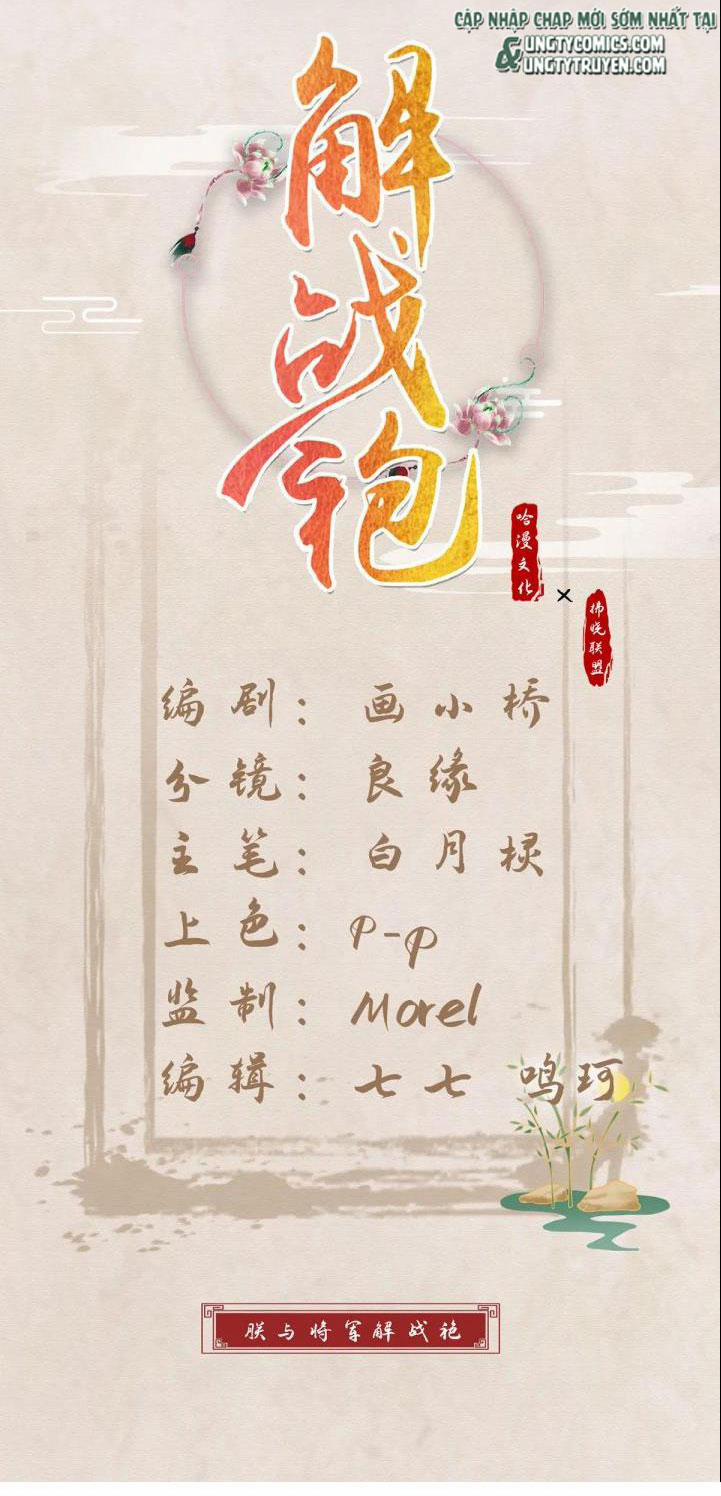 CẬP NHẬP CHAP MỚI SỚM NHẤT TẠI
& UNGTYCOMICS.COM
UNGTYTRUYEN.COM
解战袍
哈漫文化
×
拂晓联盟
编剧：画小桥
分镜：良缘
主笔：白月棂
上色：P-P
监制：Morel
编辑：七七 鸣珂
朕与将军解战袍